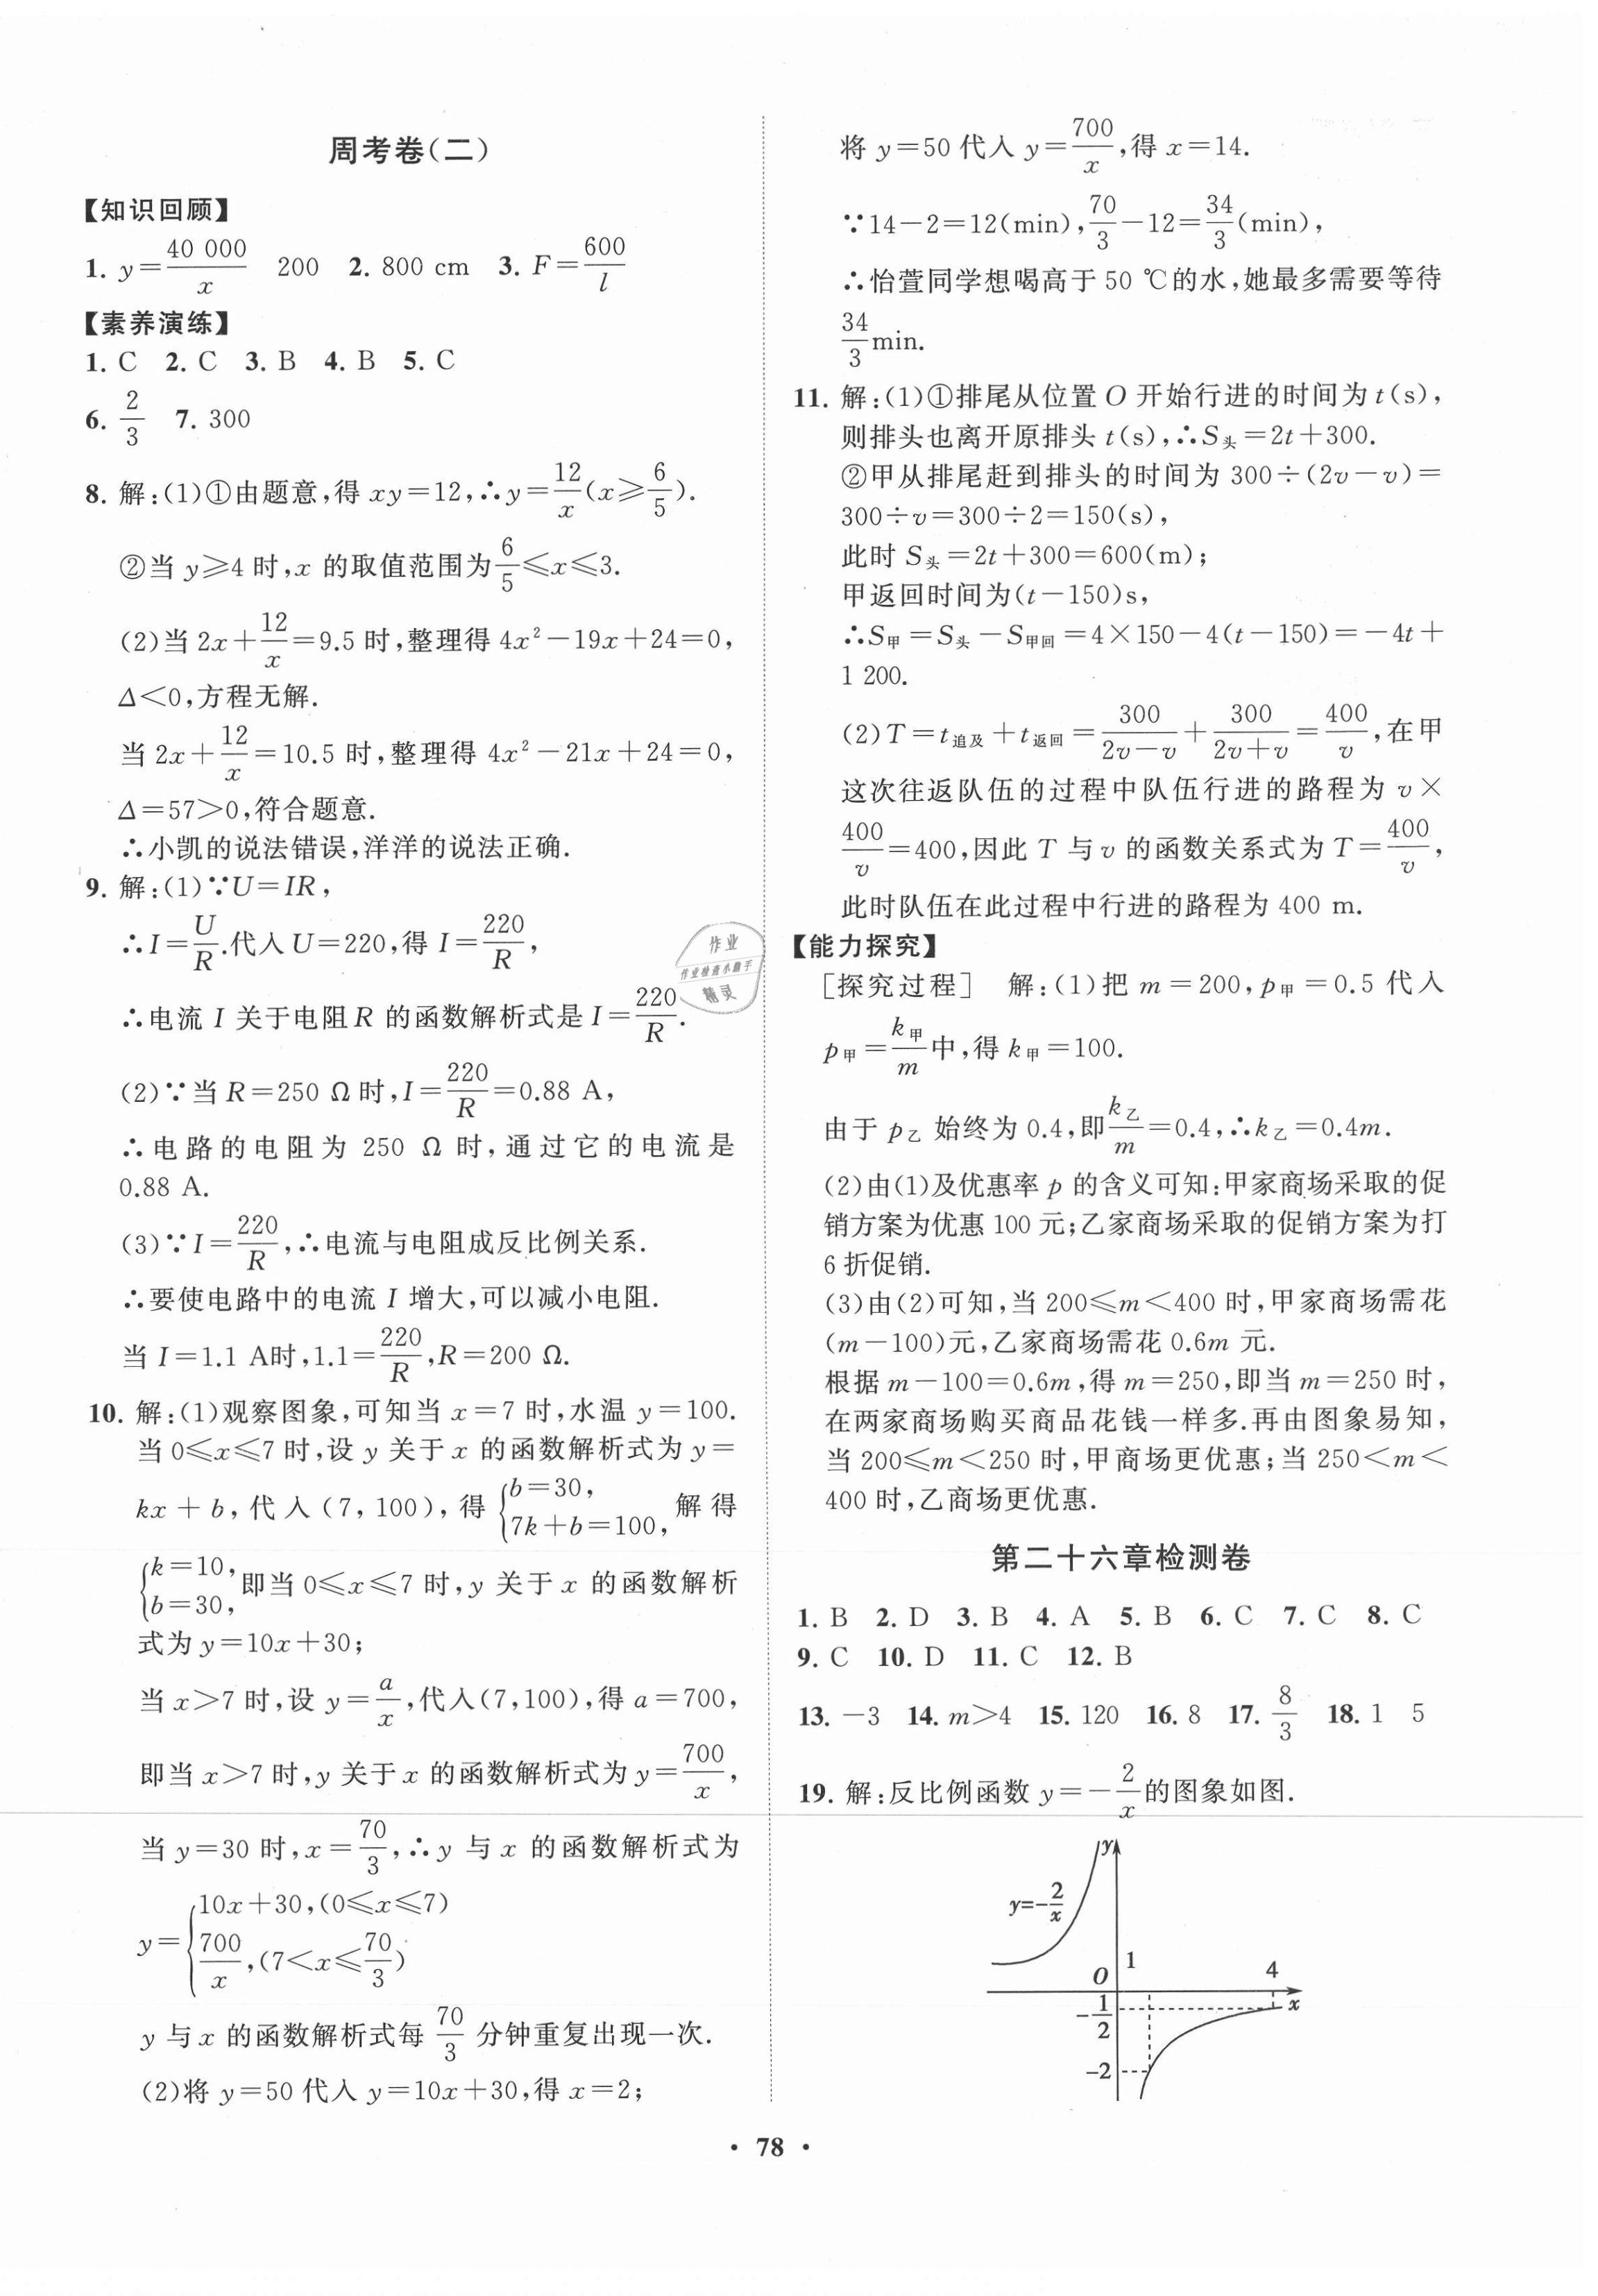 周考卷(二)
【知识回顾】
1. y=40 000/x 200 2. 800 cm 3. F=600/l
【素养演练】
1. C 2. C 3. B 4. B 5. C
6. 2/3 7. 300
8. 解:(1)①由题意,得 xy=12,∴y=12/x(x≥6/5).
②当 y≥4 时,x 的取值范围为6/5≤x≤3.
(2)当 2x+12/x=9.5 时,整理得 4x²-19x+24=0,
Δ<0,方程无解.
当 2x+12/x=10.5 时,整理得 4x²-21x+24=0,
Δ=57>0,符合题意.
∴小凯的说法错误,洋洋的说法正确.
9. 解:(1)∵U=IR,
∴I=U/R.代入 U=220,得 I=220/R,
∴电流 I 关于电阻 R 的函数解析式是 I=220/R.
(2)∵当 R=250 Ω 时,I=220/R=0.88 A,
∴电路的电阻为 250 Ω 时,通过它的电流是
0.88 A.
(3)∵I=220/R,∴电流与电阻成反比例关系.
∴要使电路中的电流 I 增大,可以减小电阻.
当 I=1.1 A时,1.1=220/R,R=200 Ω.
10. 解:(1)观察图象,可知当 x=7 时,水温 y=100.
当 0≤x≤7 时,设 y 关于 x 的函数解析式为 y=
kx+b,代入(7,100),得{b=30, 7k+b=100,解得
{k=10, b=30,即当 0≤x≤7 时,y 关于 x 的函数解析
式为 y=10x+30;
当 x>7 时,设 y=a/x,代入(7,100),得 a=700,
即当 x>7 时,y 关于 x 的函数解析式为 y=700/x,
当 y=30 时,x=70/3,∴y 与 x 的函数解析式为
y={10x+30,(0≤x≤7)
700/x,(7<x≤70/3)
y 与 x 的函数解析式每 70/3 分钟重复出现一次.
(2)将 y=50 代入 y=10x+30,得 x=2;
将 y=50 代入 y=700/x,得 x=14.
∵14-2=12(min),70/3-12=34/3(min),
∴怡萱同学想喝高于 50 ℃的水,她最多需要等待
34/3min.
11. 解:(1)①排尾从位置 O 开始行进的时间为 t(s),
则排头也离开原排头 t(s),∴S头=2t+300.
②甲从排尾赶到排头的时间为 300÷(2v-v)=
300÷v=300÷2=150(s),
此时 S头=2t+300=600(m);
甲返回时间为(t-150)s,
∴S甲=S头-S甲回=4×150-4(t-150)=-4t+
1 200.
(2)T=t追及+t返回=300/(2v-v)+300/(2v+v)=400/v,在甲
这次往返队伍的过程中队伍行进的路程为 v×
400/v=400,因此 T 与 v 的函数关系式为 T=400/v,
此时队伍在此过程中行进的路程为 400 m.
【能力探究】
[探究过程] 解:(1)把 m=200,p甲=0.5 代入
p甲=k甲/m中,得 k甲=100.
由于 p乙 始终为 0.4,即k乙/m=0.4,∴k乙=0.4m.
(2)由(1)及优惠率 p 的含义可知:甲家商场采取的促
销方案为优惠 100 元;乙家商场采取的促销方案为打
6 折促销.
(3)由(2)可知,当 200≤m<400 时,甲家商场需花
(m-100)元,乙家商场需花 0.6m 元.
根据 m-100=0.6m,得 m=250,即当 m=250 时,
在两家商场购买商品花钱一样多.再由图象易知,
当 200≤m<250 时,甲商场更优惠;当 250<m<
400 时,乙商场更优惠.
第二十六章检测卷
1. B 2. D 3. B 4. A 5. B 6. C 7. C 8. C
9. C 10. D 11. C 12. B
13. -3 14. m>4 15. 120 16. 8 17. 8/3 18. 1 5
19. 解:反比例函数 y=-2/x的图象如图.
y
y=-2/x
1
O
4
-1/2
x
-2
作业
作业检查小助手
精灵
• 78 •